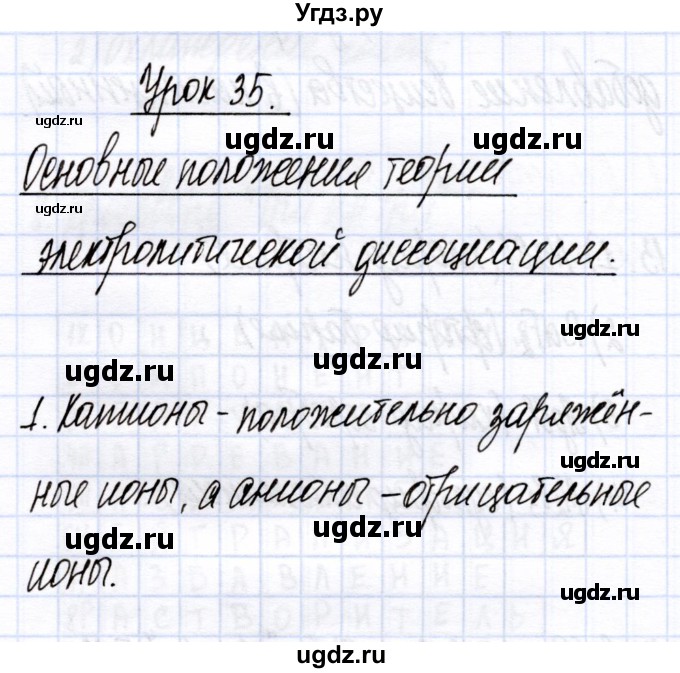 Угдз.ру
Урок 35.
ugdz.ru ugdz.ru
Основные положения теории
ugdz.ru
электролитической диссоциации.
ugdz.ru
ugdz.ru ugdz.ru
1. Катионы - положительно заряжён-
ugdz.ru
ные ионы, а анионы - отрицательные
ugdz.ru ugdz.ru
ионы.
ugdz.ru
ugdz.ru